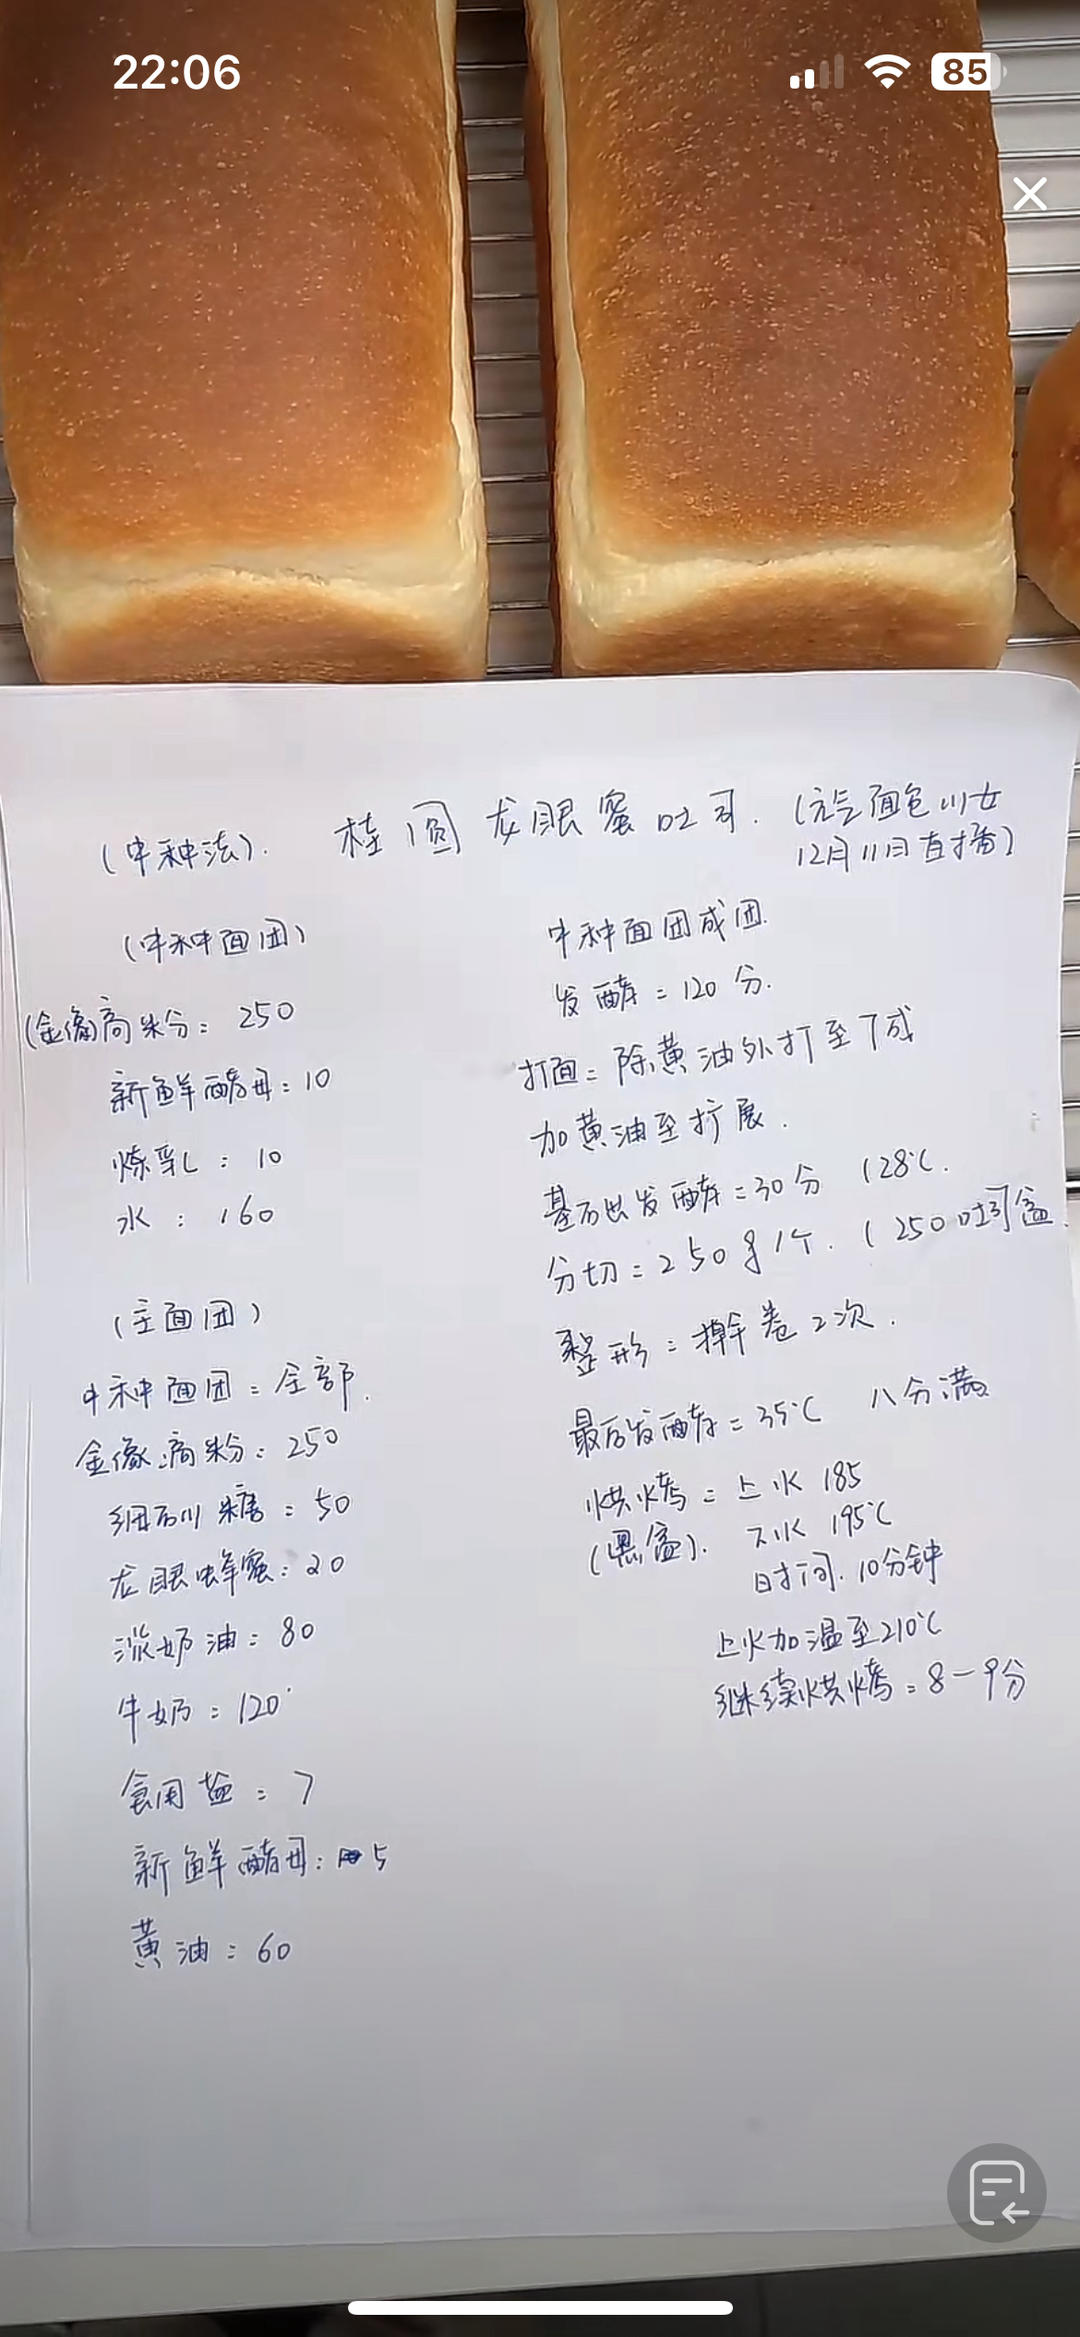 22:06
85
(中种法).
桂圆龙眼蜜吐司.
(元气面包少女
12月11日直播)
(中种面团)
(金像)高粉: 250
新鲜酵母: 10
炼乳: 10
水: 160
(主面团)
中种面团: 全部.
金像高粉: 250
细砂糖: 50
龙眼蜂蜜: 20
淡奶油: 80
牛奶: 120
食用盐: 7
新鲜酵母: 5
黄油: 60
中种面团成团.
发酵: 120分.
打面: 除黄油外打至7成
加黄油至扩展.
基础发酵: 30分 (28℃.
分切: 250g 1个. (250吐司盒.
整形: 擀卷2次.
最后发酵: 35℃ 八分满
烘烤: 上火 185
(黑盒). 下火 195℃
时间. 10分钟
上火加温至210℃
继续烘烤: 8-9分